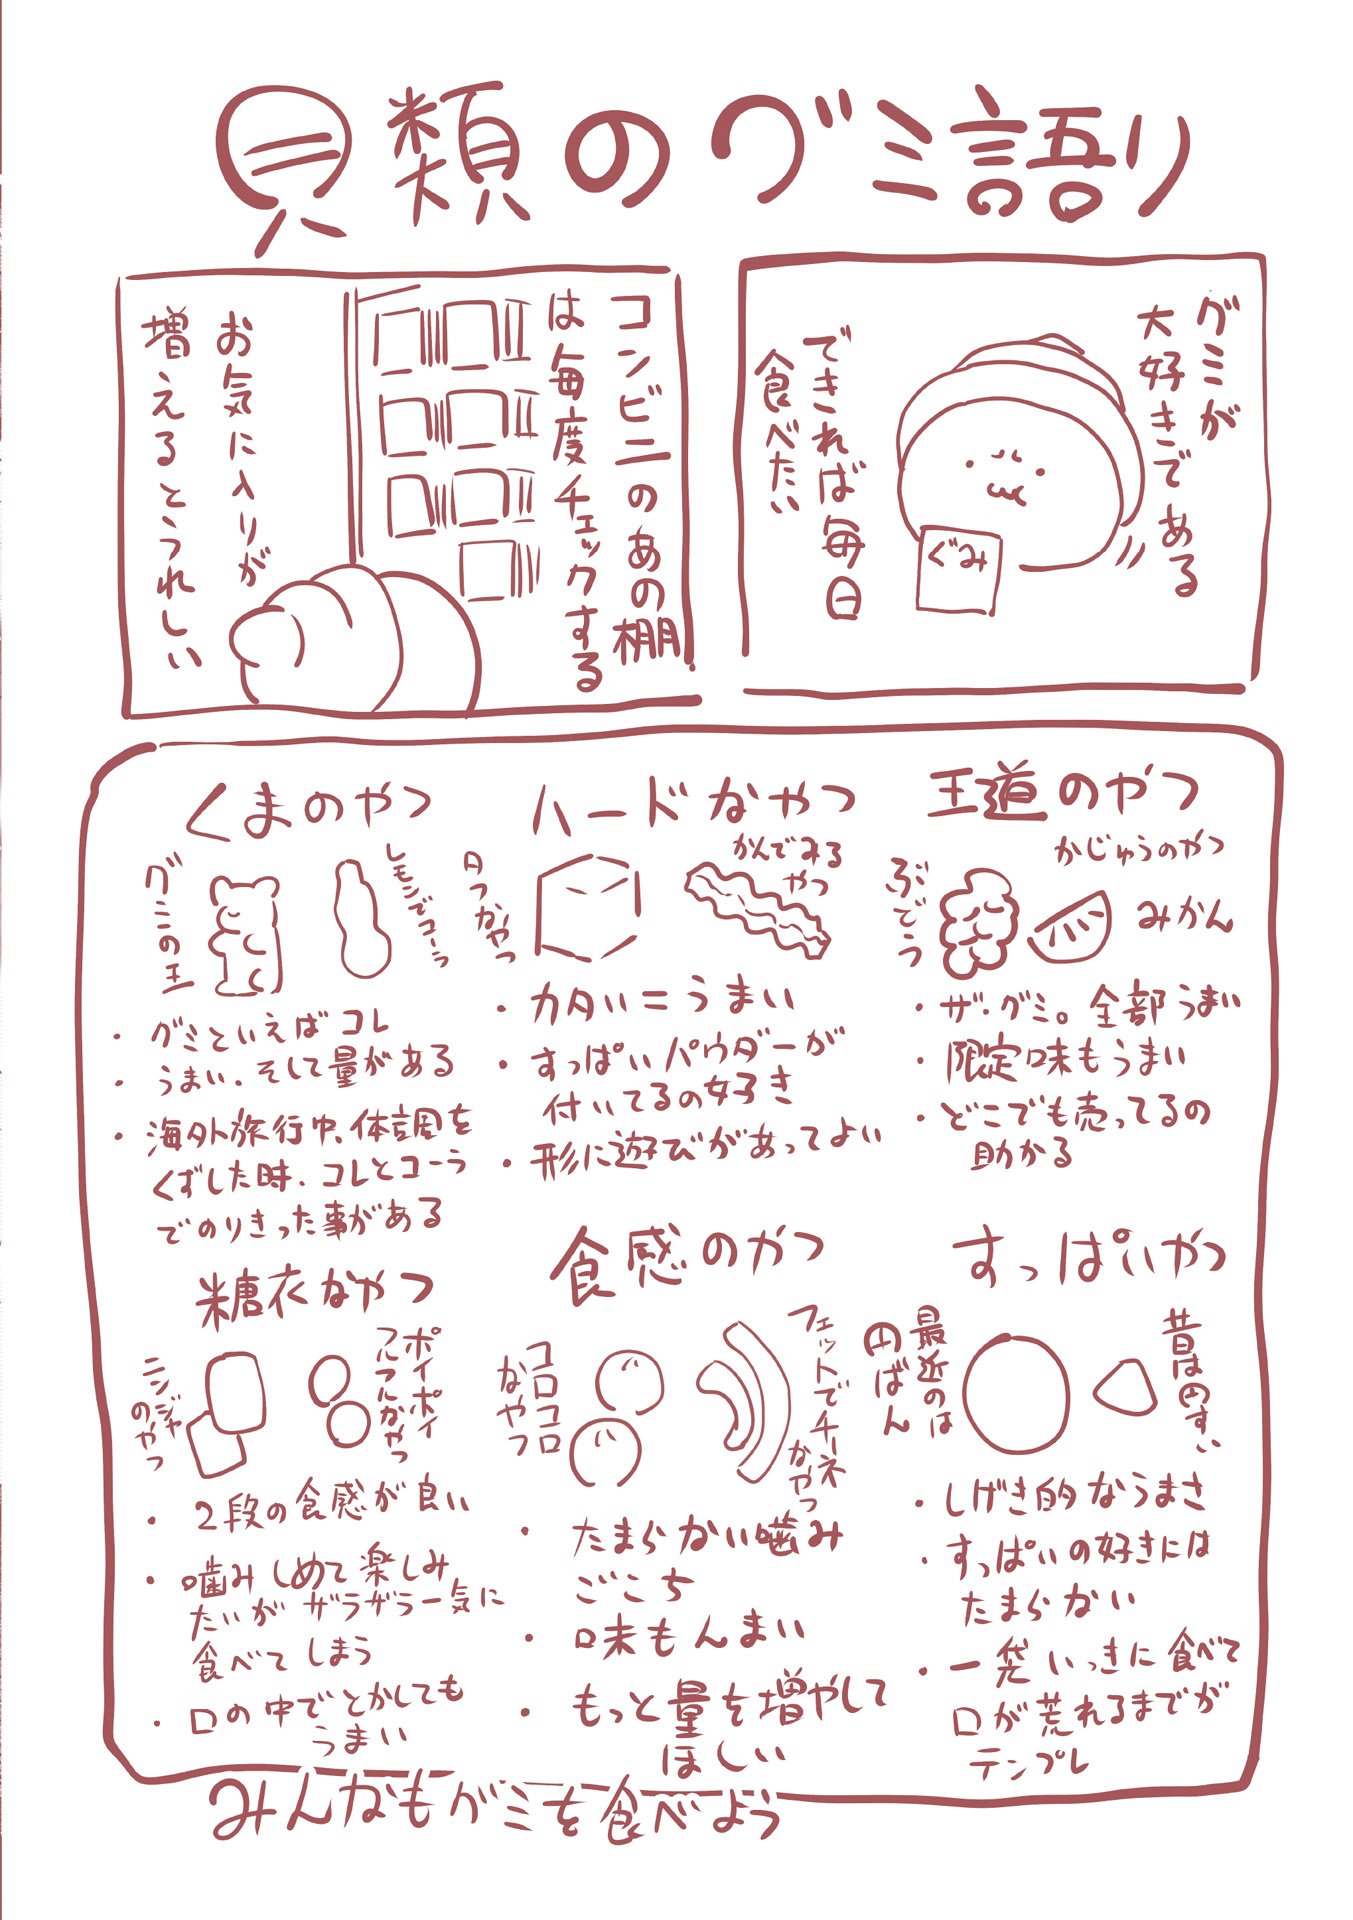 貝類のグミ語り
グミが
大好きである
できれば毎日
食べたい
ぐみ
コンビニのあの棚
は毎度チェックする
お気に入りが
増えるとうれしい
王道のやつ
かじゅうのやつ
ぶどう
みかん
・ザ・グミ。全部うまい
・限定味もうまい
・どこでも売ってるの
助かる
ハードなやつ
かんでみる
やつ
カタいやつ
・カタい＝うまい
・すっぱいパウダーが
付いてるの好き
・形に遊びがあってよい
くまのやつ
グミの王
レモンでコーラ
・グミといえばコレ
・うまい、そして量がある
・海外旅行中、体調を
くずした時、コレとコーラ
でのりきった事がある
すっぱいやつ
昔は円すい
最近のは
円ばん
・しげき的なうまさ
・すっぱいの好きには
たまらない
・一袋いっきに食べて
口が荒れるまでが
テンプレ
食感のやつ
フェットでチーネ
なやつ
コロコロ
なやつ
・たまらない噛み
ごこち
・味もんまい
・もっと量を増やして
ほしい
糖衣なやつ
ポイポイ
フルフルなやつ
ニンジャ
のやつ
・2段の食感が良い
・噛みしめて楽しみ
たいがザラザラ一気に
食べてしまう
・口の中でとかしても
うまい
みんなもグミを食べよう